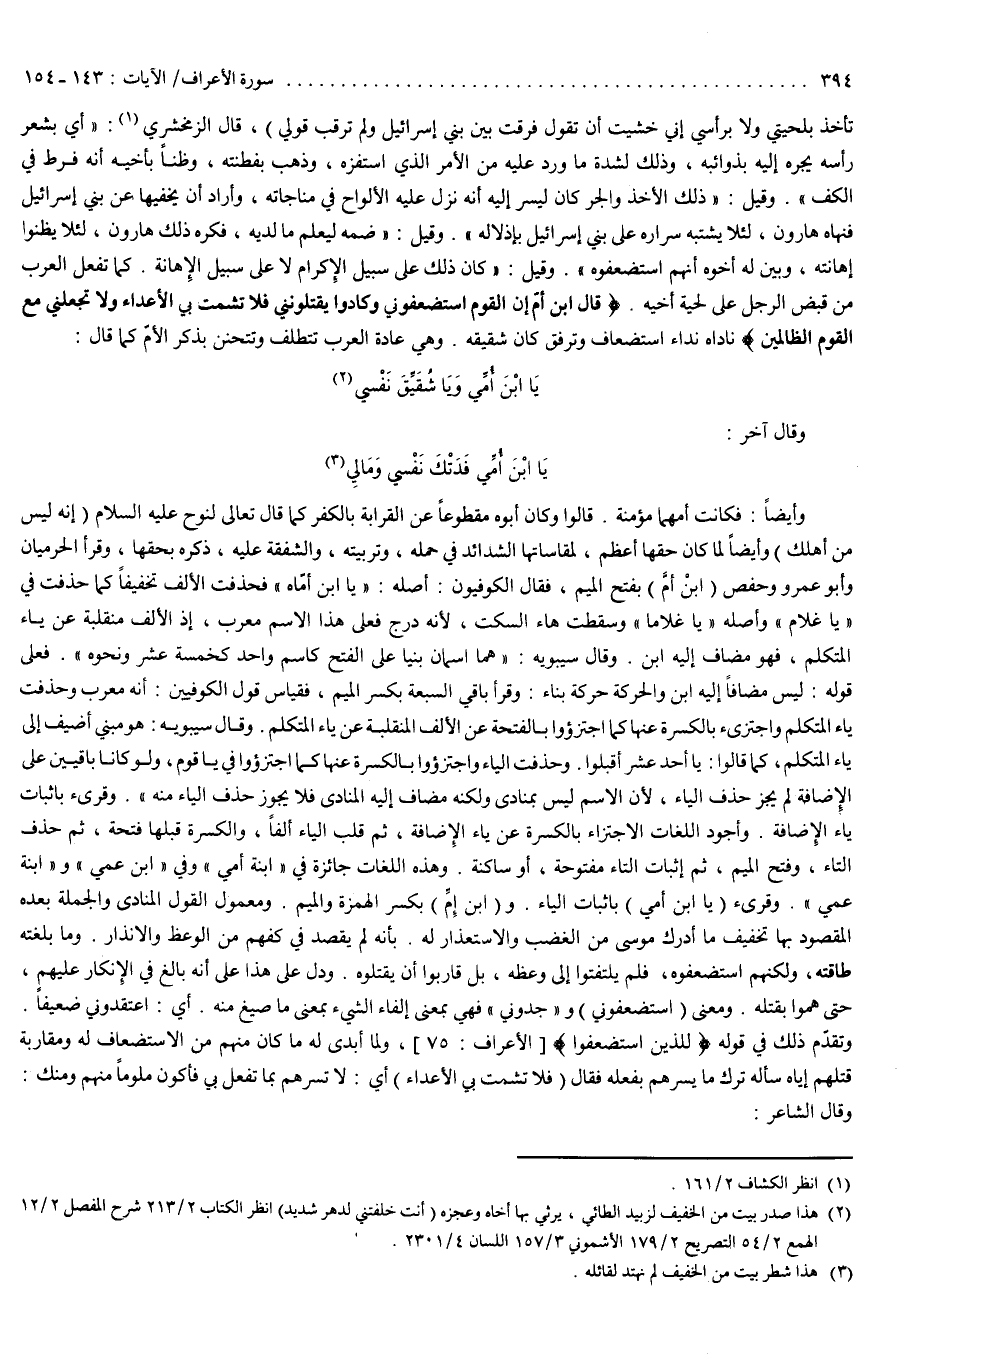 ٣٩٤ ................................................ سورة الأعراف/ الآيات : ١٤٣ - ١٥٤
تأخذ بلحيتي ولا برأسي إني خشيت أن تقول فرقت بين بني إسرائيل ولم ترقب قولي ) ، قال الزمخشري(١) : « أي بشعر
رأسه يجره إليه بذوائبه ، وذلك لشدة ما ورد عليه من الأمر الذي استفزه ، وذهب بفطنته ، وظنـاً بأخيـه أنه فـرط في
الكف » . وقيل : « ذلك الأخذ والجر كان ليسر إليه أنه نزل عليه الألواح في مناجاته ، وأراد أن يخفيها عن بني إسرائيل
فنهاه هارون ، لئلا يشتبه سراره على بني إسرائيل بإذلاله » . وقيل : « ضمه ليعلم ما لديه ، فكره ذلك هارون ، لئلا يظنوا
إهانته ، وبين له أخوه أنهم استضعفوه » . وقيل : « كان ذلك على سبيل الإكرام لا على سبيل الإهانة . كما تفعل العرب
من قبض الرجل على لحية أخيه . ﴿ قال ابن أمّ إن القوم استضعفوني وكادوا يقتلونني فلا تشمت بي الأعداء ولا تجعلني مع
القوم الظالمين ﴾ ناداه نداء استضعاف وترفق كان شقيقه . وهي عادة العرب تتطلف وتتحنن بذكر الأمّ كما قال :
يَا ابْنَ أُمِّي وَيَا شُقَيِّقَ نَفْسِي(٢)
وقال آخر :
يَا ابْنَ أُمِّي فَدَتْكَ نَفْسِي وَمَالِي(٣)
وأيضاً : فكانت أمهما مؤمنة . قالوا وكان أبوه مقطوعاً عن القرابة بالكفر كما قال تعالى لنوح عليه السلام ( إنه ليس
من أهلك ) وأيضاً لما كان حقها أعظم ، لمقاساتها الشدائد في حمله ، وتربيته ، والشفقة عليه ، ذكره بحقها ، وقرأ الحرميان
وأبو عمرو وحفص ( ابنْ أمَّ ) بفتح الميم ، فقال الكوفيون : أصله : « يا ابن أمّاه » فحذفت الألف تخفيفاً كما حذفت في
« يا غلام » وأصله « يا غلاما » وسقطت هاء السكت ، لأنه درج فعلى هذا الاسم معرب ، إذ الألف منقلبة عن يـاء
المتكلم ، فهو مضاف إليه ابن . وقال سيبويه : « هما اسمان بنيا على الفتح كاسم واحد كخمسة عشر ونحوه » . فعلى
قوله : ليس مضافاً إليه ابن والحركة حركة بناء : وقرأ باقي السبعة بكسر الميم ، فقياس قول الكوفيين : أنه معرب وحذفت
ياء المتكلم واجتزىء بالكسرة عنها كما اجتزؤوا بـالفتحة عن الألف المنقلبـة عن ياء المتكلم . وقـال سيبويـه : هو مبني أضيف إلى
ياء المتكلم ، كما قالوا : يا أحد عشر أقبلوا . وحذفت الياء واجتزؤوا بـالكسرة عنها كـما اجتزؤوا في يـا قوم ، ولـو كانـا باقيـين على
الإضافة لم يجز حذف الياء ، لأن الاسم ليس بمنادى ولكنه مضاف إليه المنادى فلا يجوز حذف الياء منه » . وقرىء باثبات
ياء الإضافة . وأجود اللغات الاجتزاء بالكسرة عن ياء الإضافة ، ثم قلب الياء ألفاً ، والكسرة قبلها فتحة ، ثم حذف
التاء ، وفتح الميم ، ثم إثبات التاء مفتوحة ، أو ساكنة . وهذه اللغات جائزة في « ابنة أمي » وفي « ابن عمي » و « ابنة
عمي » . وقرىء ( يا ابن أمي ) باثبات الياء . و ( ابن إمِّ ) بكسر الهمزة والميم . ومعمول القول المنادى والجملة بعده
المقصود بها تخفيف ما أدرك موسى من الغضب والاستعذار له . بأنه لم يقصد في كفهم من الوعظ والانذار . وما بلغته
طاقته ، ولكنهم استضعفوه ، فلم يلتفتوا إلى وعظه ، بل قاربوا أن يقتلوه . ودل على هذا على أنه بالغ في الإنكار عليهم ،
حتى هموا بقتله . ومعنى ( استضعفوني ) و « جدوني » فهي بمعنى إلفاء الشيء بمعنى ما صيغ منه . أي : اعتقدوني ضعيفاً .
وتقدّم ذلك في قوله ﴿ للذين استضعفوا ﴾ [ الأعراف : ٧٥ ] ، ولما أبدى له ما كان منهم من الاستضعاف له ومقاربة
قتلهم إياه سأله ترك ما يسرهم بفعله فقال ( فلا تشمت بي الأعداء ) أي : لا تسرهم بما تفعل بي فأكون ملوماً منهم ومنك :
وقال الشاعر :
(١) انظر الكشاف ١٦١/٢ .
(٢) هذا صدر بيت من الخفيف لزبيد الطائي ، يرثي بها أخاه وعجزه ( أنت خلفتني لدهر شديد) انظر الكتاب ٢١٣/٢ شرح المفصل ١٢/٢
الهمع ٥٤/٢ التصريح ١٧٩/٢ الأشموني ١٥٧/٣ اللسان ٢٣٠١/٤ .
(٣) هذا شطر بيت من الخفيف لم نهتد لقائله .